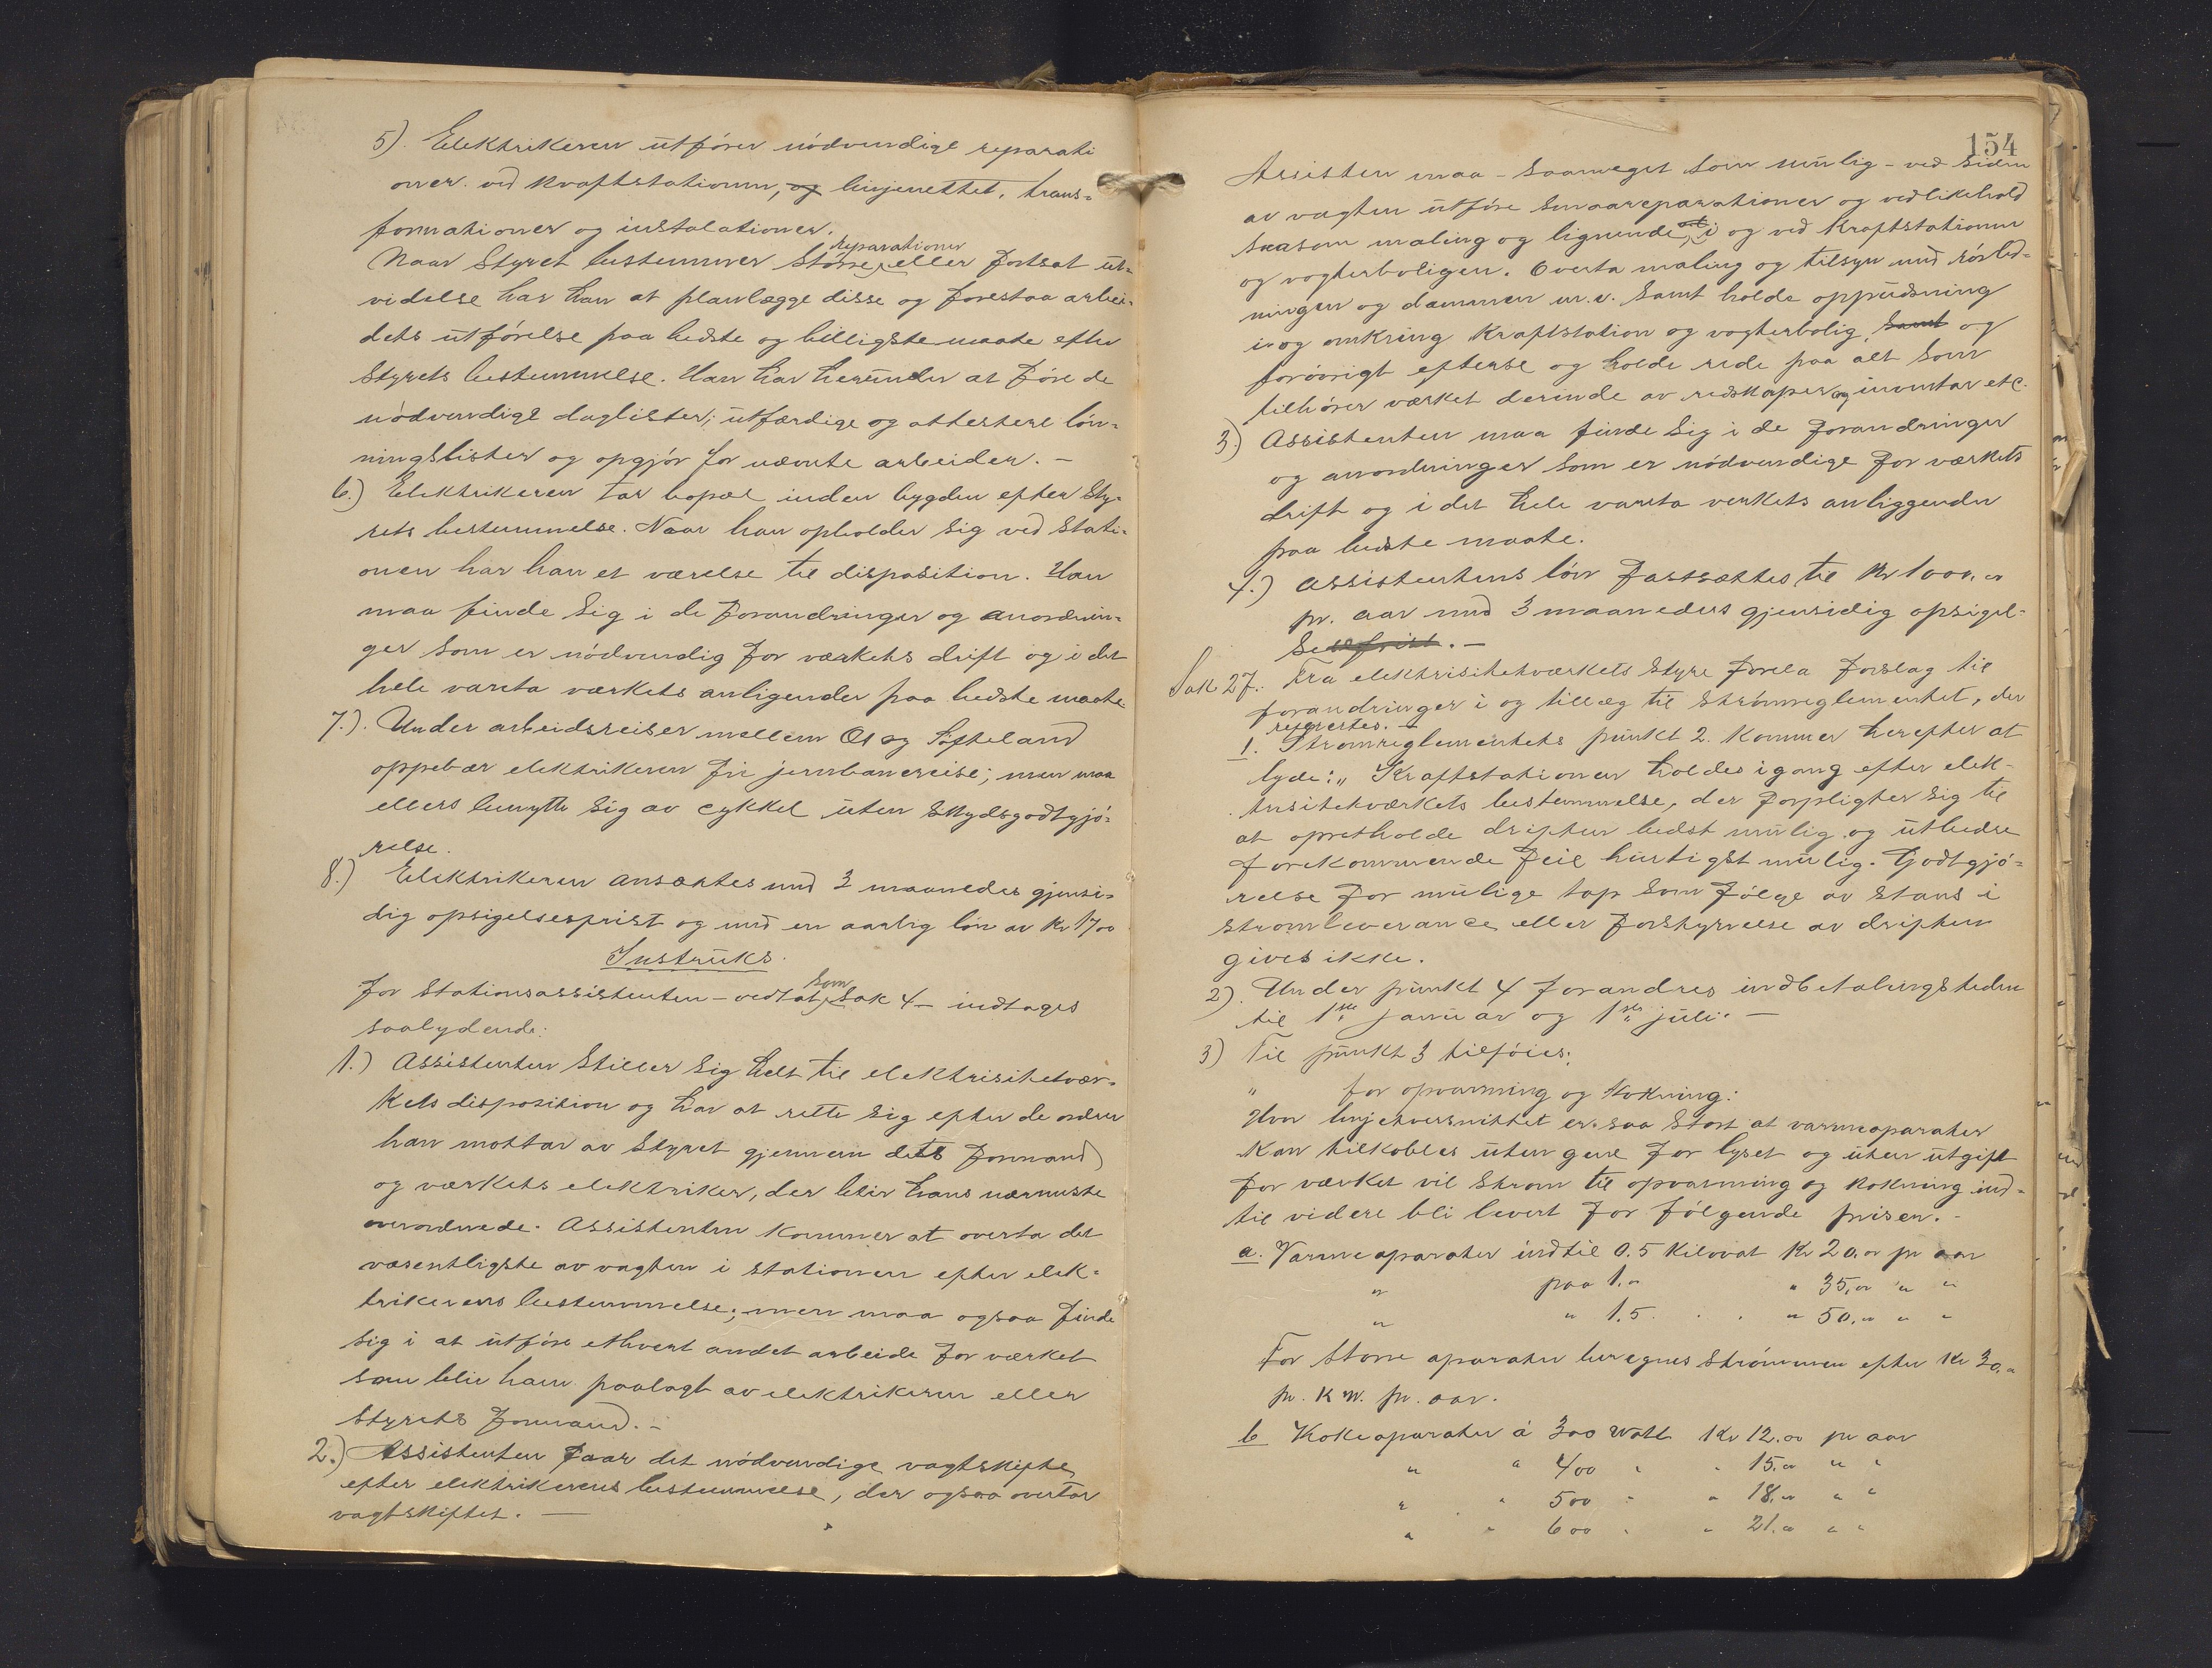 5). Elektrikeren utfører nødvendige reparati
oner ved kraftstationen, og linjenettet, trans-
formationer og instalationer.
reparationer
Naar Styret bestemmer større eller fortsat ut-
videlse har han at planlægge disse og forestaa arbei-
dets utførelse paa bedste og billigste maate efter
Styrets bestemmelse. Han har herunder at føre de
nødvendige daglister; utfærdige og attestere løn-
ningslister og opgjør for nævnte arbeider. –
6.) Elektrikeren tar bopæl inden bygden efter Sty-
rets bestemmelse. Naar han opholder sig ved stati-
onen har han et værelse til disposition. Han
maa finde sig i de forandringer og anordnin-
ger som er nødvendig for værkets drift og i det
hele vareta værkets anligender paa bedste maate
7.). Under arbeidsreiser mellem Os og Søfteland
oppebær elektrikeren fri jernbanereise; men maa
ellers benytte sig av cykkel uten skydsgodtgjø-
relse.
8.) Elektrikeren ansættes med 3 maaneders gjensi-
dig opsigelsesfrist og med en aarlig løn av Kr 1700
Instruks.
som
for Stationsassistenten – vedtat Sak 4 – indtages
saalydende:
1.) Assistenten stiller sig helt til elektrisitetvær-
kets disposition og har at rette sig efter de ordrer
han mottar av Styret gjennem dets formand
og værkets elektriker, der blir hans nærmeste
overordnede. Assistenten kommer at overta det
væsentligste av vagten i stationen efter elek-
trikerens bestemmelse; men maa ogsaa finde
sig i at utføre ethvert andet arbeide for værket
som blir ham paalagt av elektrikeren eller
Styrets formand. –
2.) Assistenten faar det nødvendige vagtskifte
efter elektrikerens bestemmelse, der ogsaa overtar
vagtskiftet. –
154
Assisten maa – saameget som mulig – ved siden
av vagten utføre smaareparationer og vedlikehold
saasom maling og lignende, i og ved Kraftstationen
og vogterboligen. Overta maling og tilsyn med rørled-
ningen og dammen m.v. samt holde oppudsning
i og omkring Kraftstation og vogterbolig, samt og
forøvrigt efterse og holde rede paa alt som
tilhører værket derinde av redskaper og inventar etc.
3.) Assistenten maa finde sig i de forandringer
og anordninger som er nødvendige for værkets
drift og i det hele vareta verkets anliggender
paa bedste maate.
4.) Assistentens løn fastsættes til Kr 1000.00
pr. aar med 3 maaneders gjensidig opsigel-
se
Sak 27. Fra elektrisitetværkets Styre forela forslag til
forandringer i og tillæg til Strømreglementet, der
referertes. –
1. Strømreglementets punkt 2. kommer herefter at
lyde: „Kraftstationen holdes igang efter elek-
trisitetværkets bestemmelse, der forpligter sig til
at opretholde driften bedst mulig og utbedre
forekommende feil hurtigst mulig. Godtgjø-
relse for mulige tap som følge av stans i
strømleverance eller forstyrrelse av driften
gives ikke.
2). Under punkt 4 forandres indbetalingstiden
til 1ste januar og 1ste juli. –
3) Til punkt 3 tilføies:
" for opvarmning og kokning:
Hvor linjetversnittet er saa stort at varmeaparater
kan tilkobles uten gene for lyset og uten utgift
for værket vil strøm til opvarmning og kokning ind-
til videre bli levert for følgende priser. –
a. Varmeaparater indtil 0.5 Kilovat Kr 20.00 pr aar
" paa 1.0 " 35.00 " "
" " 1.5 . . " 50.00 " "
For større aparater beregnes Strømmen efter Kr 30.00
pr. K W. pr. aar.
b Kokeaparater á 300 Watt Kr 12.00 pr aar
" " 400 " " 15.00 " "
" " 500 " " 18.00 " "
" " 600 " " 21.00 " "